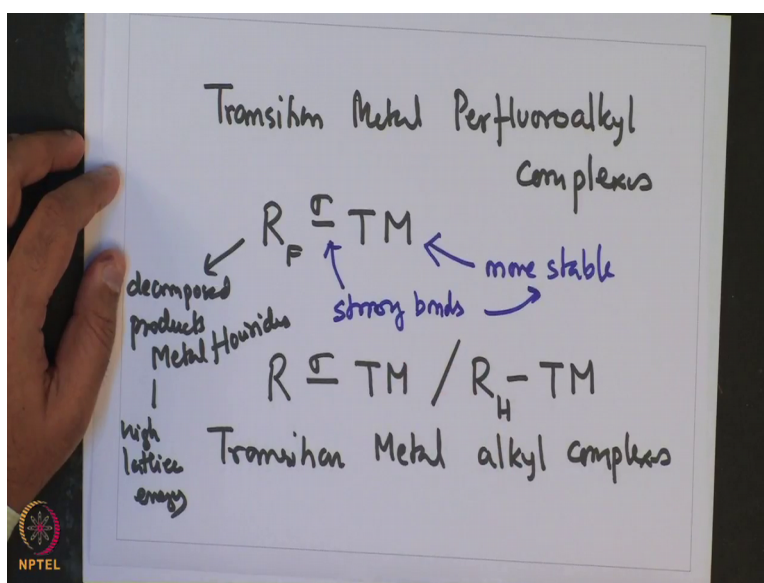 Transition Metal Perfluoroalkyl
complexes
R_F σ— TM
more stable
strong bonds
decomposed
products
Metal flourides
high
lattice
energy
R σ— TM / R_H — TM
Transition Metal alkyl complexes
NPTEL